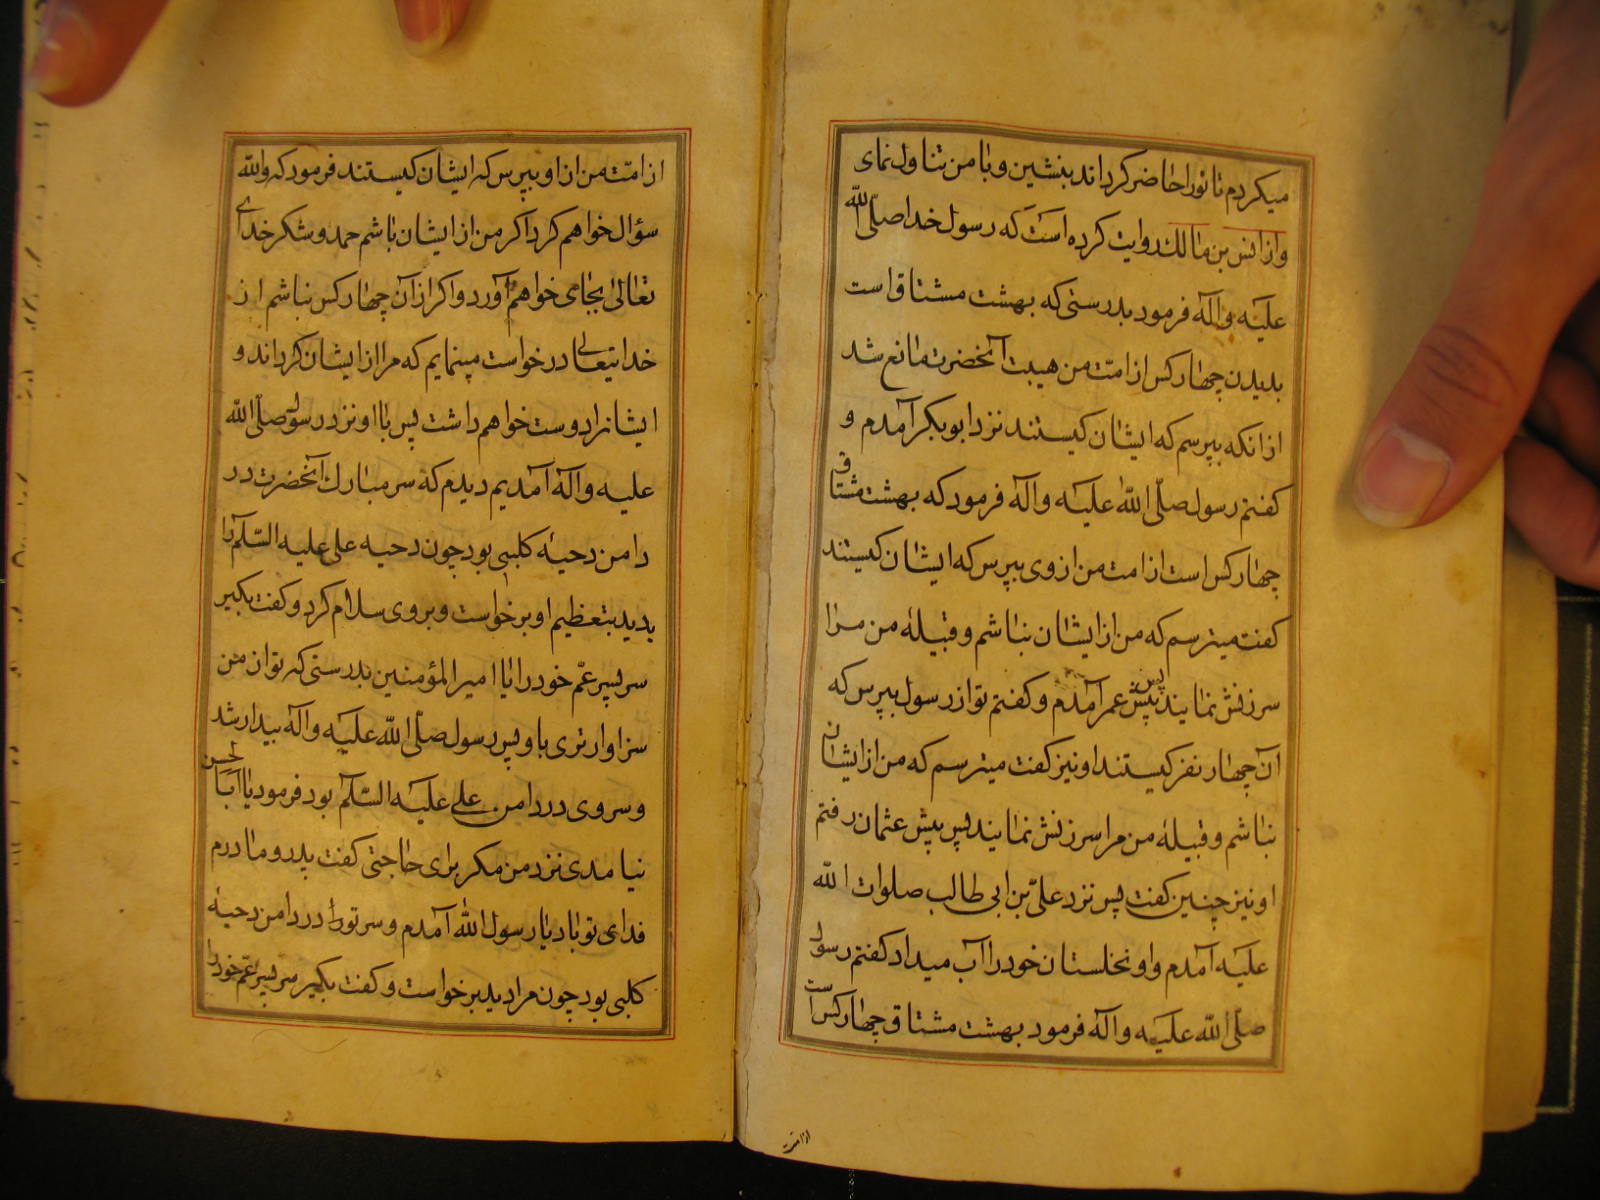 میکردم تا تورا حاضر کرداند بنشین و با من تناول نمای
و از انس بن مالک روایت کرده است که رسول خدا صلّی اللّه
علیه و آله فرمود بدرستی که بهشت مشتاق است
بدیدن چهار کس از امّت من هیبت آنحضرت مانع شد
از انکه بپرسم که ایشان کیستند نزد ابو بکر آمدم و
کفتم رسول صلّی اللّه علیه و آله فرمود که بهشت مشتاق
چهار کس است از امت من از وی بپرس که ایشان کیستند
کفت میترسم که من از ایشان نباشم و قبیلهٔ من مرا
سرزنش نمایند پس پیش عمر آمدم و کفتم تو از رسول بپرس که
آن چهار نفر کیستند او نیز کفت میترسم که من از ایشان
نباشم و قبیلهٔ من مرا سرزنش نمایند پس پیش عثمان رفتم
او نیز چنین کفت پس نزد علیّ بن ابی طالب صلوات اللّه
علیه آمدم و او نخلستان خود را آب میداد کفتم رسول
صلّی اللّه علیه و آله فرمود بهشت مشتاق چهار کس است
از امت
از امّت من از او بپرس که ایشان کیستند فرمود که واللّه
سؤال خواهم کرد اکر من از ایشان باشم حمد و شکر خدای
تعالی بجای خواهم آورد و اکر از آن چهار کس نباشم از
خدایتعالی درخواست مینمایم که مرا از ایشان کرداند و
ایشانرا دوست خواهم داشت پس با او نزد رسول صلّی اللّه
علیه و آله آمدیم دیدم که سر مبارک آنحضرت در
دامن دحیهٔ کلبی بود چون دحیه علی علیه السّلم را
بدید بتعظیم او برخواست و بروی سلام کرد و کفت بکیر
سر پسر عّم خود را یا امیر المؤمنین بدرستی که تو از من
سزاوارتری باو پس رسول صلّی اللّه علیه و آله بیدار شد
و سر وی در دامن علی علیه السّلم بود فرمود یا ابا الحسن
نیامدی نزد من مکر برای حاجتی کفت پدر و مادرم
فدای تو باد یا رسول اللّه آمدم و سر تو را در دامن دحیهٔ
کلبی بود چون مرا دید برخواست و کفت بکیر سر پسر عّم خود را